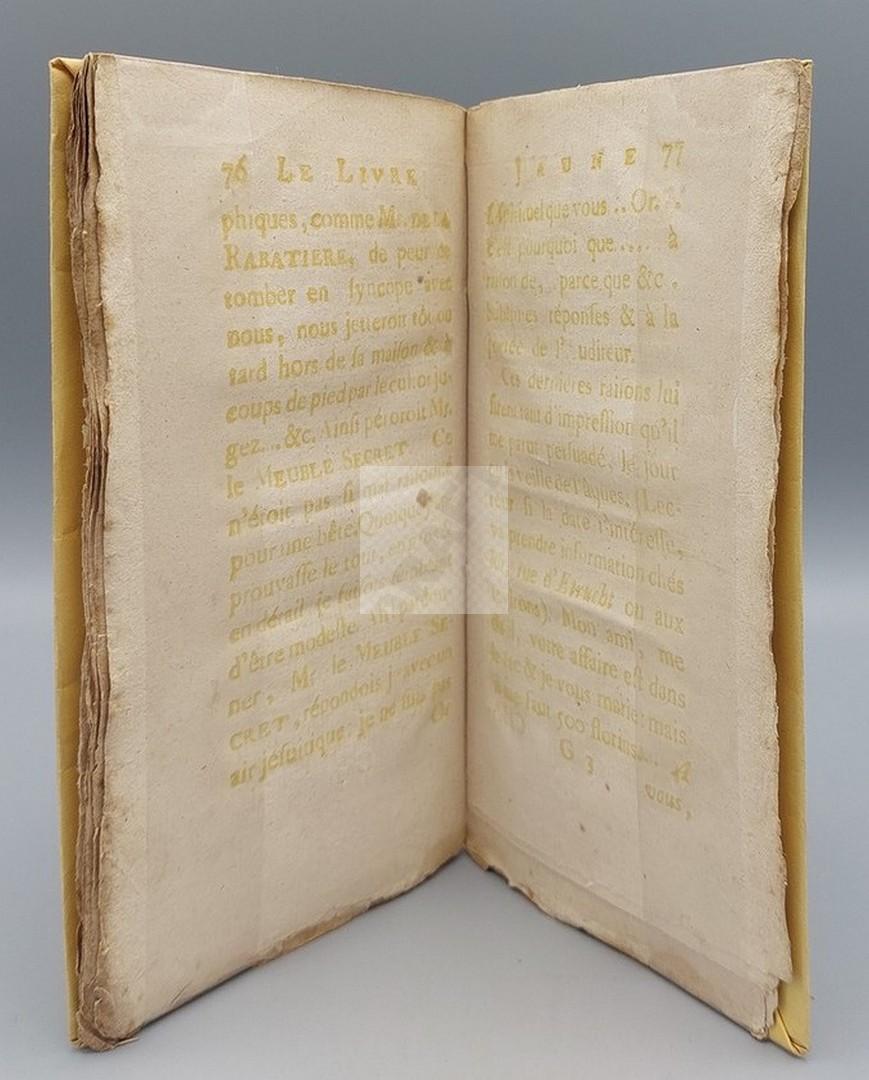 76 LE LIVRE
phiques, comme Mr. DE LA
RABATIERE, de peur de
tomber en ſyncope avec
nous, nous jetteroit tôt ou
tard hors de ſa maiſon & à
coups de pied par le cul: or ju-
gez.... &c. Ainſi péroroit Mr.
le MEUBLE SECRET. Ce
n'étoit pas ſi mal raiſonné
pour une bête. Quoique je
prouvaſſe le tout, en gros &
en détail, je faiſois ſemblant
d'être modeſte.
ner, Mr. le MEUBLE SE-
CRET, répondois-je avec un
air jéſuitique: je ne ſuis pas
JAUNE 77
que vous .. Or. .
c'eſt pourquoi que .... à
raiſon de, parce que &c.
Sublimes réponſes & à la
portée de l'Auditeur.
Ces dernieres raiſons lui
firent tant d'impreſſion qu'il
me parut perſuadé, le jour
veille de Pâques. (Lec-
teur ſi la date t'intéreſſe,
va prendre information chés
rue d' ou aux
). Mon ami, me
dit-il, votre affaire eſt dans
le ſac & je vous marie: mais
il me faut 500 florins....
G 3
vous,